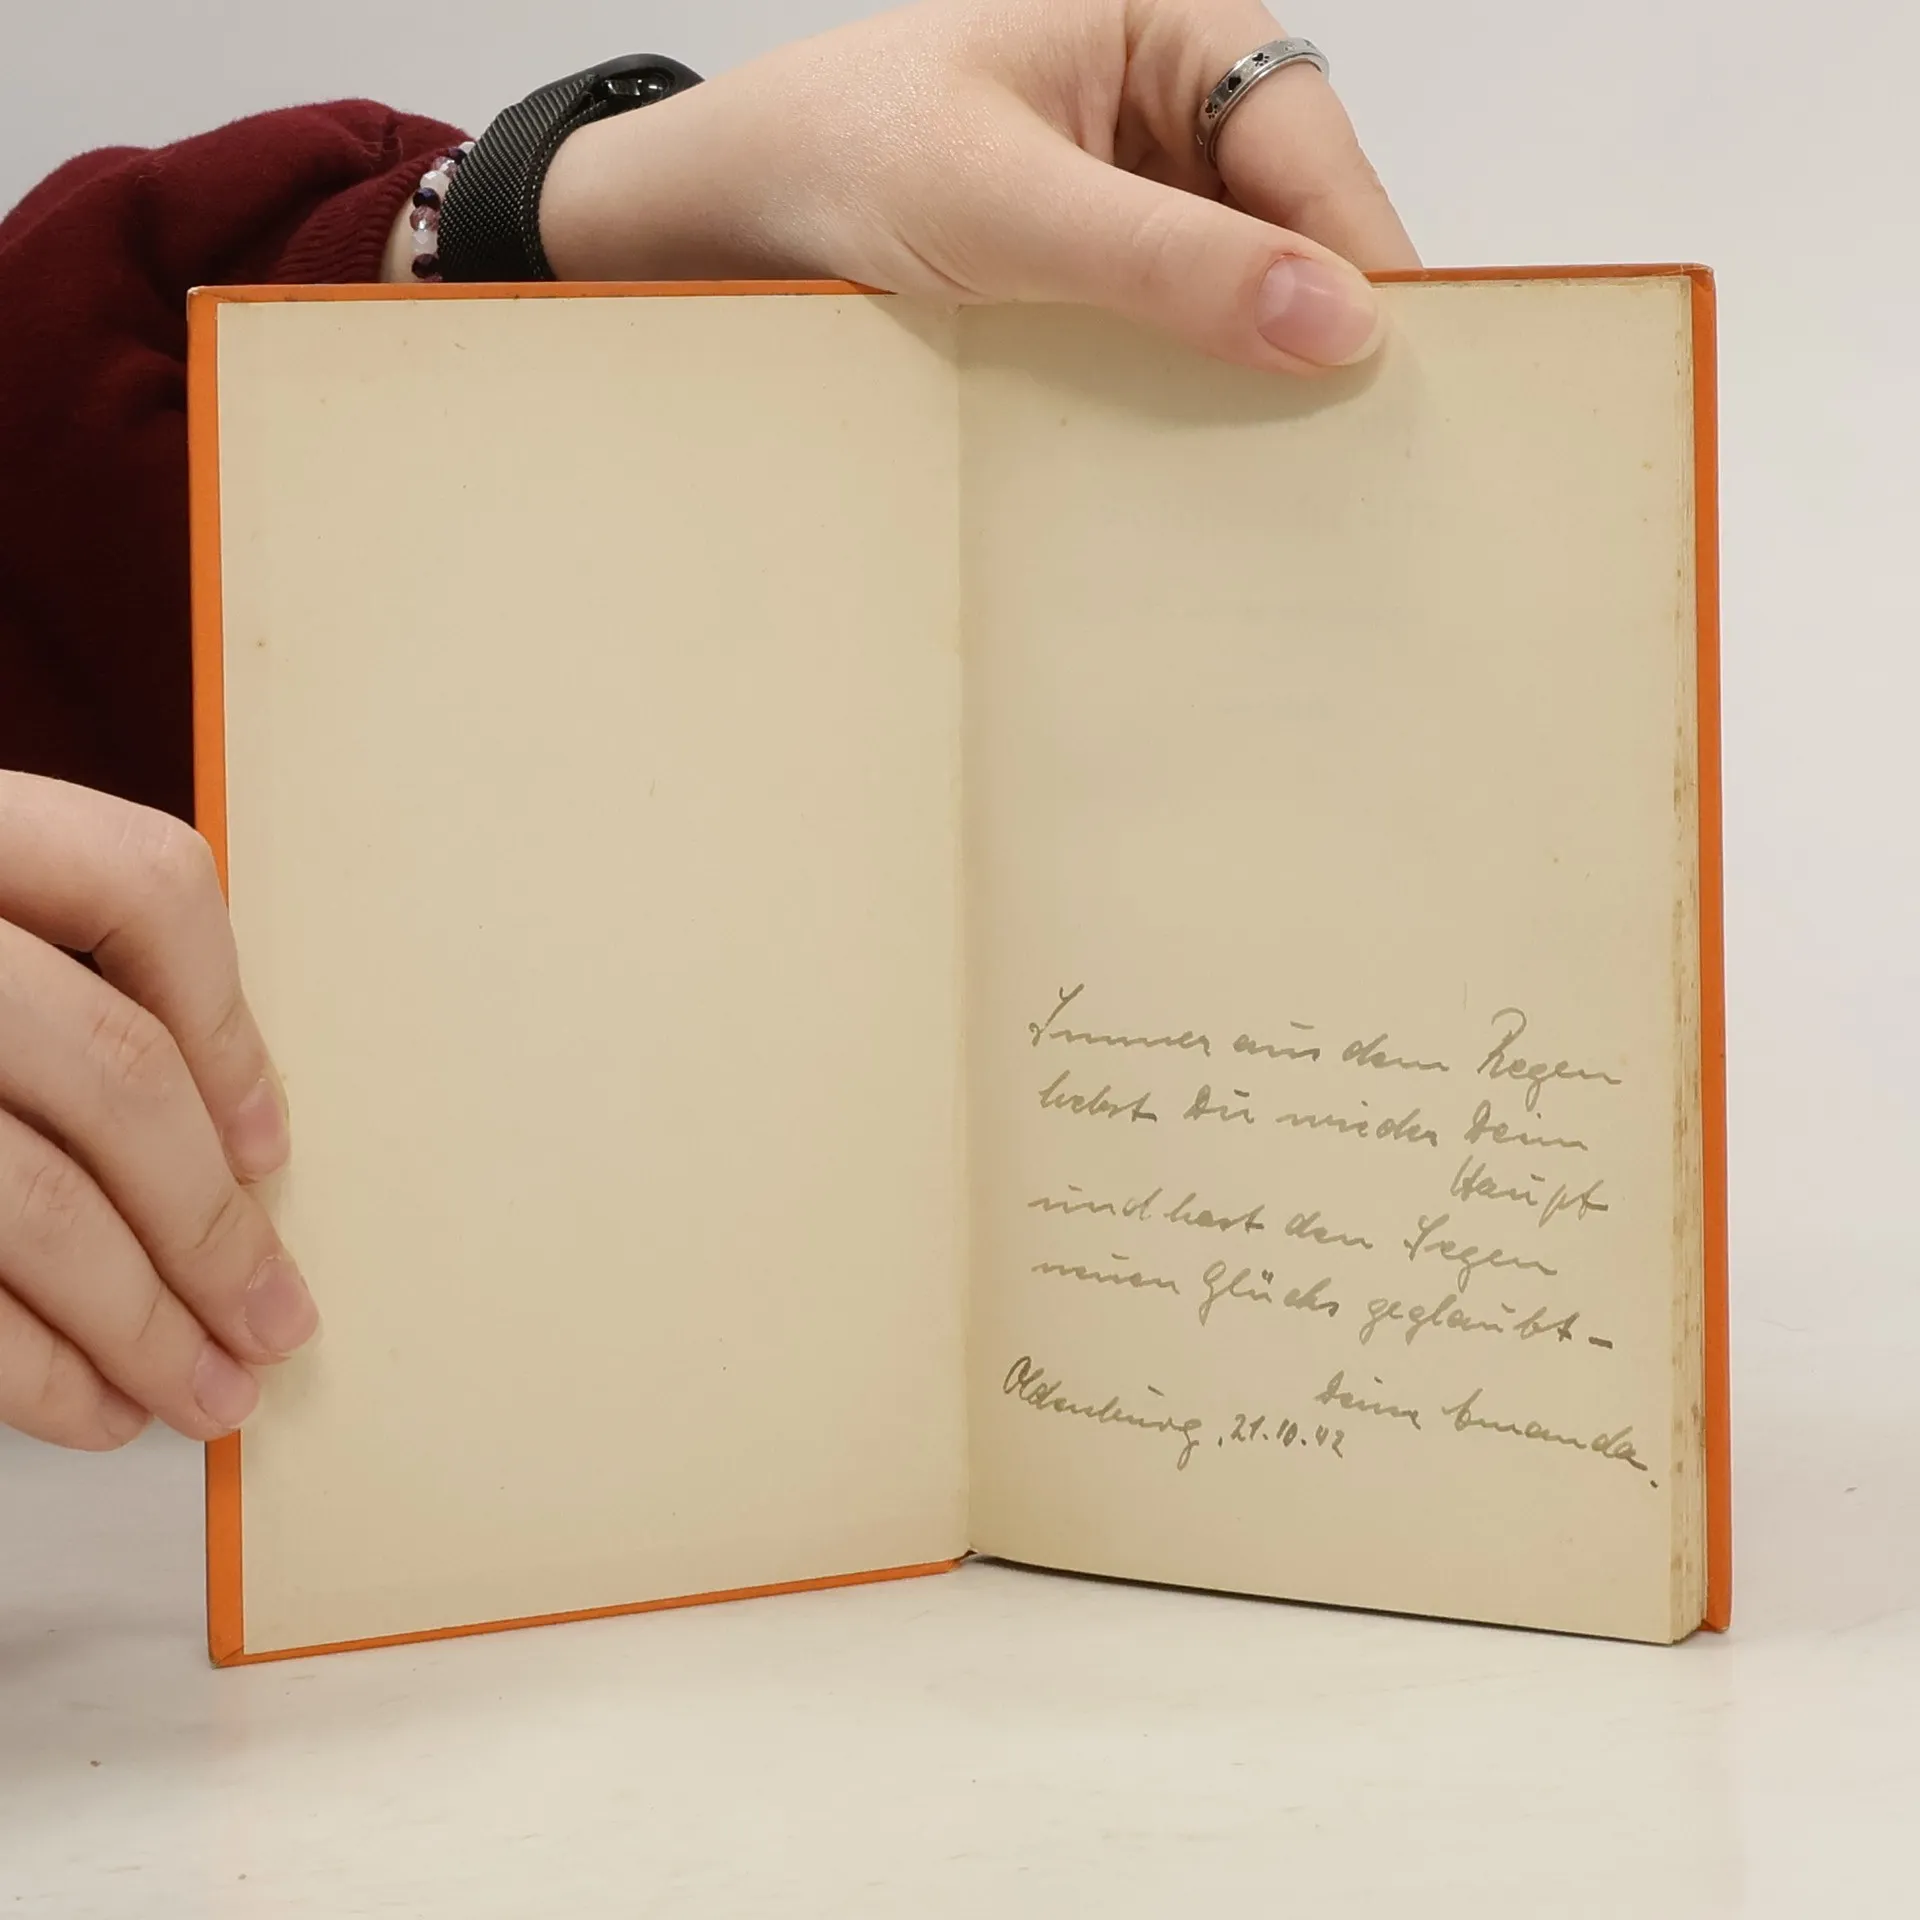 Immer aus dem Regen
hebst Du wieder Dein
Haupt
und hast den Segen
neuen Glücks geglaubt –
Deine Amanda.
Oldenburg, 21.10.42